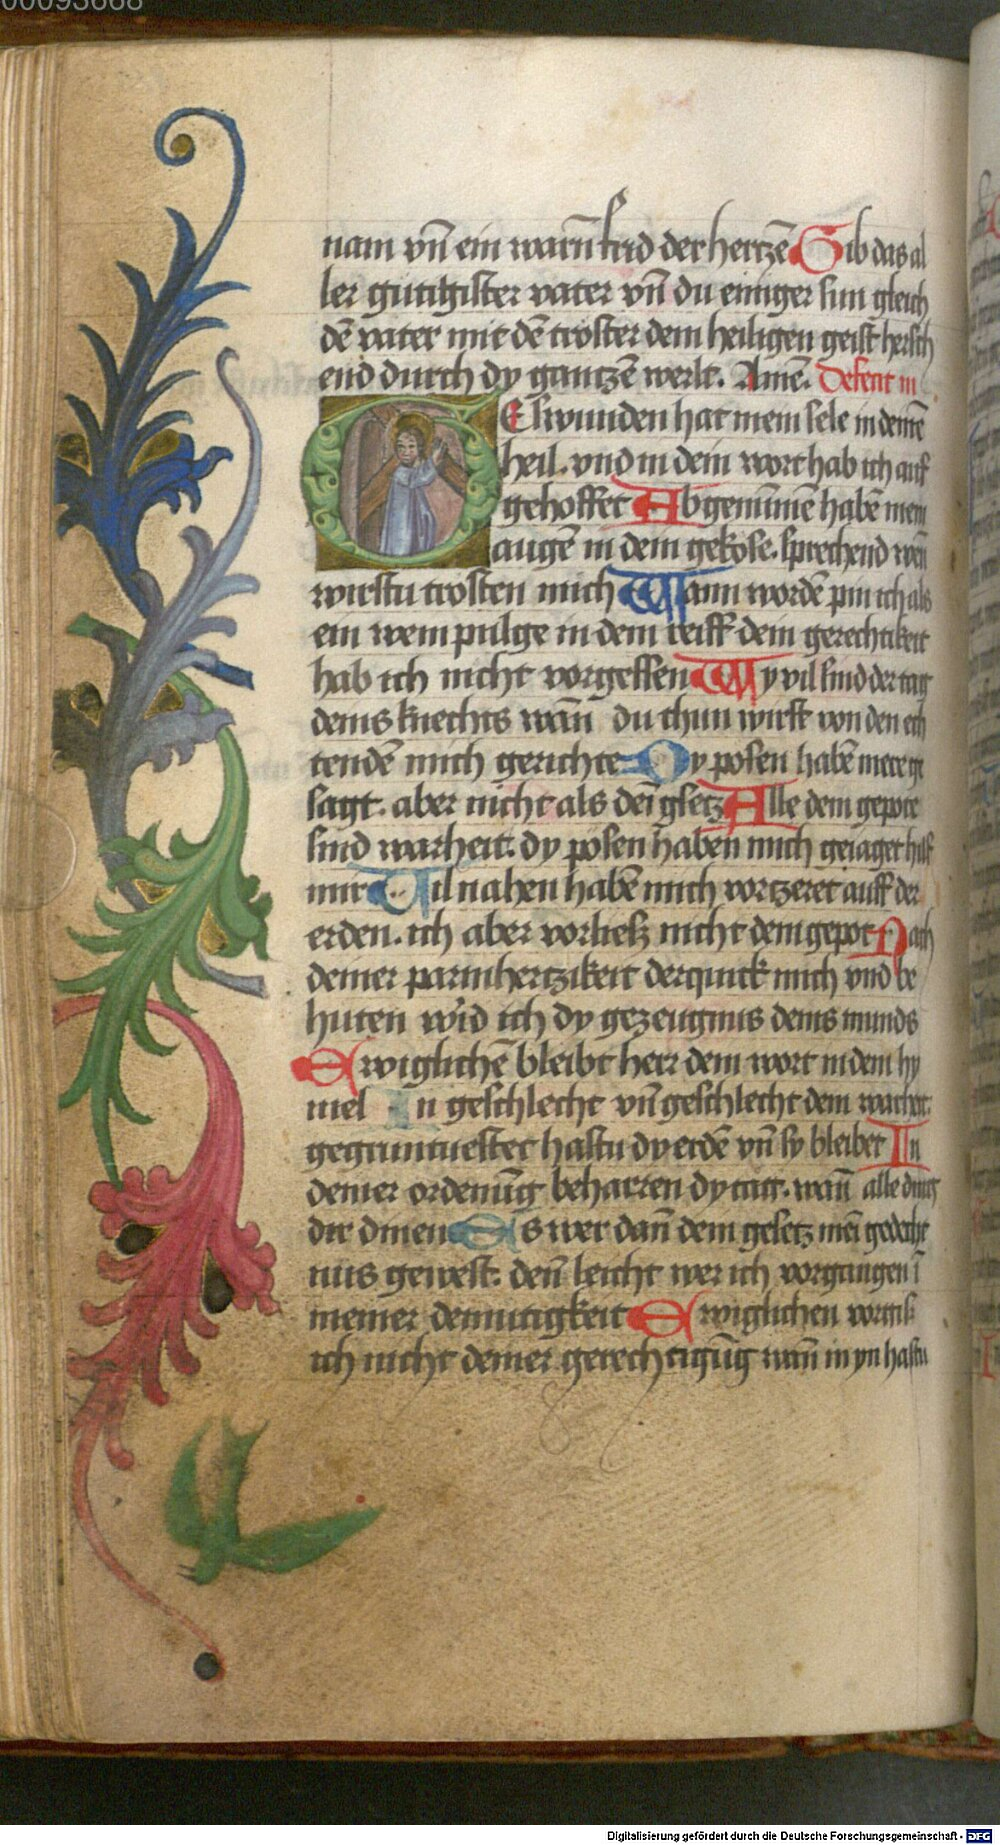 00093668
nam vn̄ ein warn frid der hertzē Gib das al
ler gutigister vater vn̄ du einiger sun gleich
dē vater mit dē troster dem heiligen geist hersch
end durch dy gantzē werlt. Amē. Defecit in
Eswunden hat mein sele in deinē
heil. vnd in dein wort hab ich auf
gehoffet Abgenūmē habē mein
augē in dein gekose. sprechend wen̄
wirstu trosten mich Wann wordē pin ich als
ein wein pulge in dem reiff dein gerechtikeit
hab ich nicht vorgessen Wy vil sind der tag
deins knechts wan̄ du thun wirst von den ech
tendē mich gerichte Dy posen habē mere ge
sagt. aber nicht als dei͂ gsetz Alle dein gepote
sind warheit. dy posen haben mich geiaget hilf
mir Vil nahen habē mich vortzeret auff der
erden. ich aber vorließ nicht dein gepot Nach
deiner parmhertzikeit derquick mich vnd be
huten wͥd ich dy gezeugnus deins munds
Ewiglichē bleibt herr dein wort in dem hy
mel In geschlecht vn̄ geschlecht dein warheit.
gegruntuestet hastu dy erdē vn̄ sy bleibet In
deiner ordenūg beharren dy tag. wan̄ alle ding
dir dinen Es wer dan̄ dein gesetz mei͂ gedecht
nus gewest. den̄ leicht wer ich vorgangen ī
meiner demutigkeit Ewiglichen vorgiß
ich nicht deiner gerechtigūg wan̄ in yn hastu
Digitalisierung gefördert durch die Deutsche Forschungsgemeinschaft - DFG